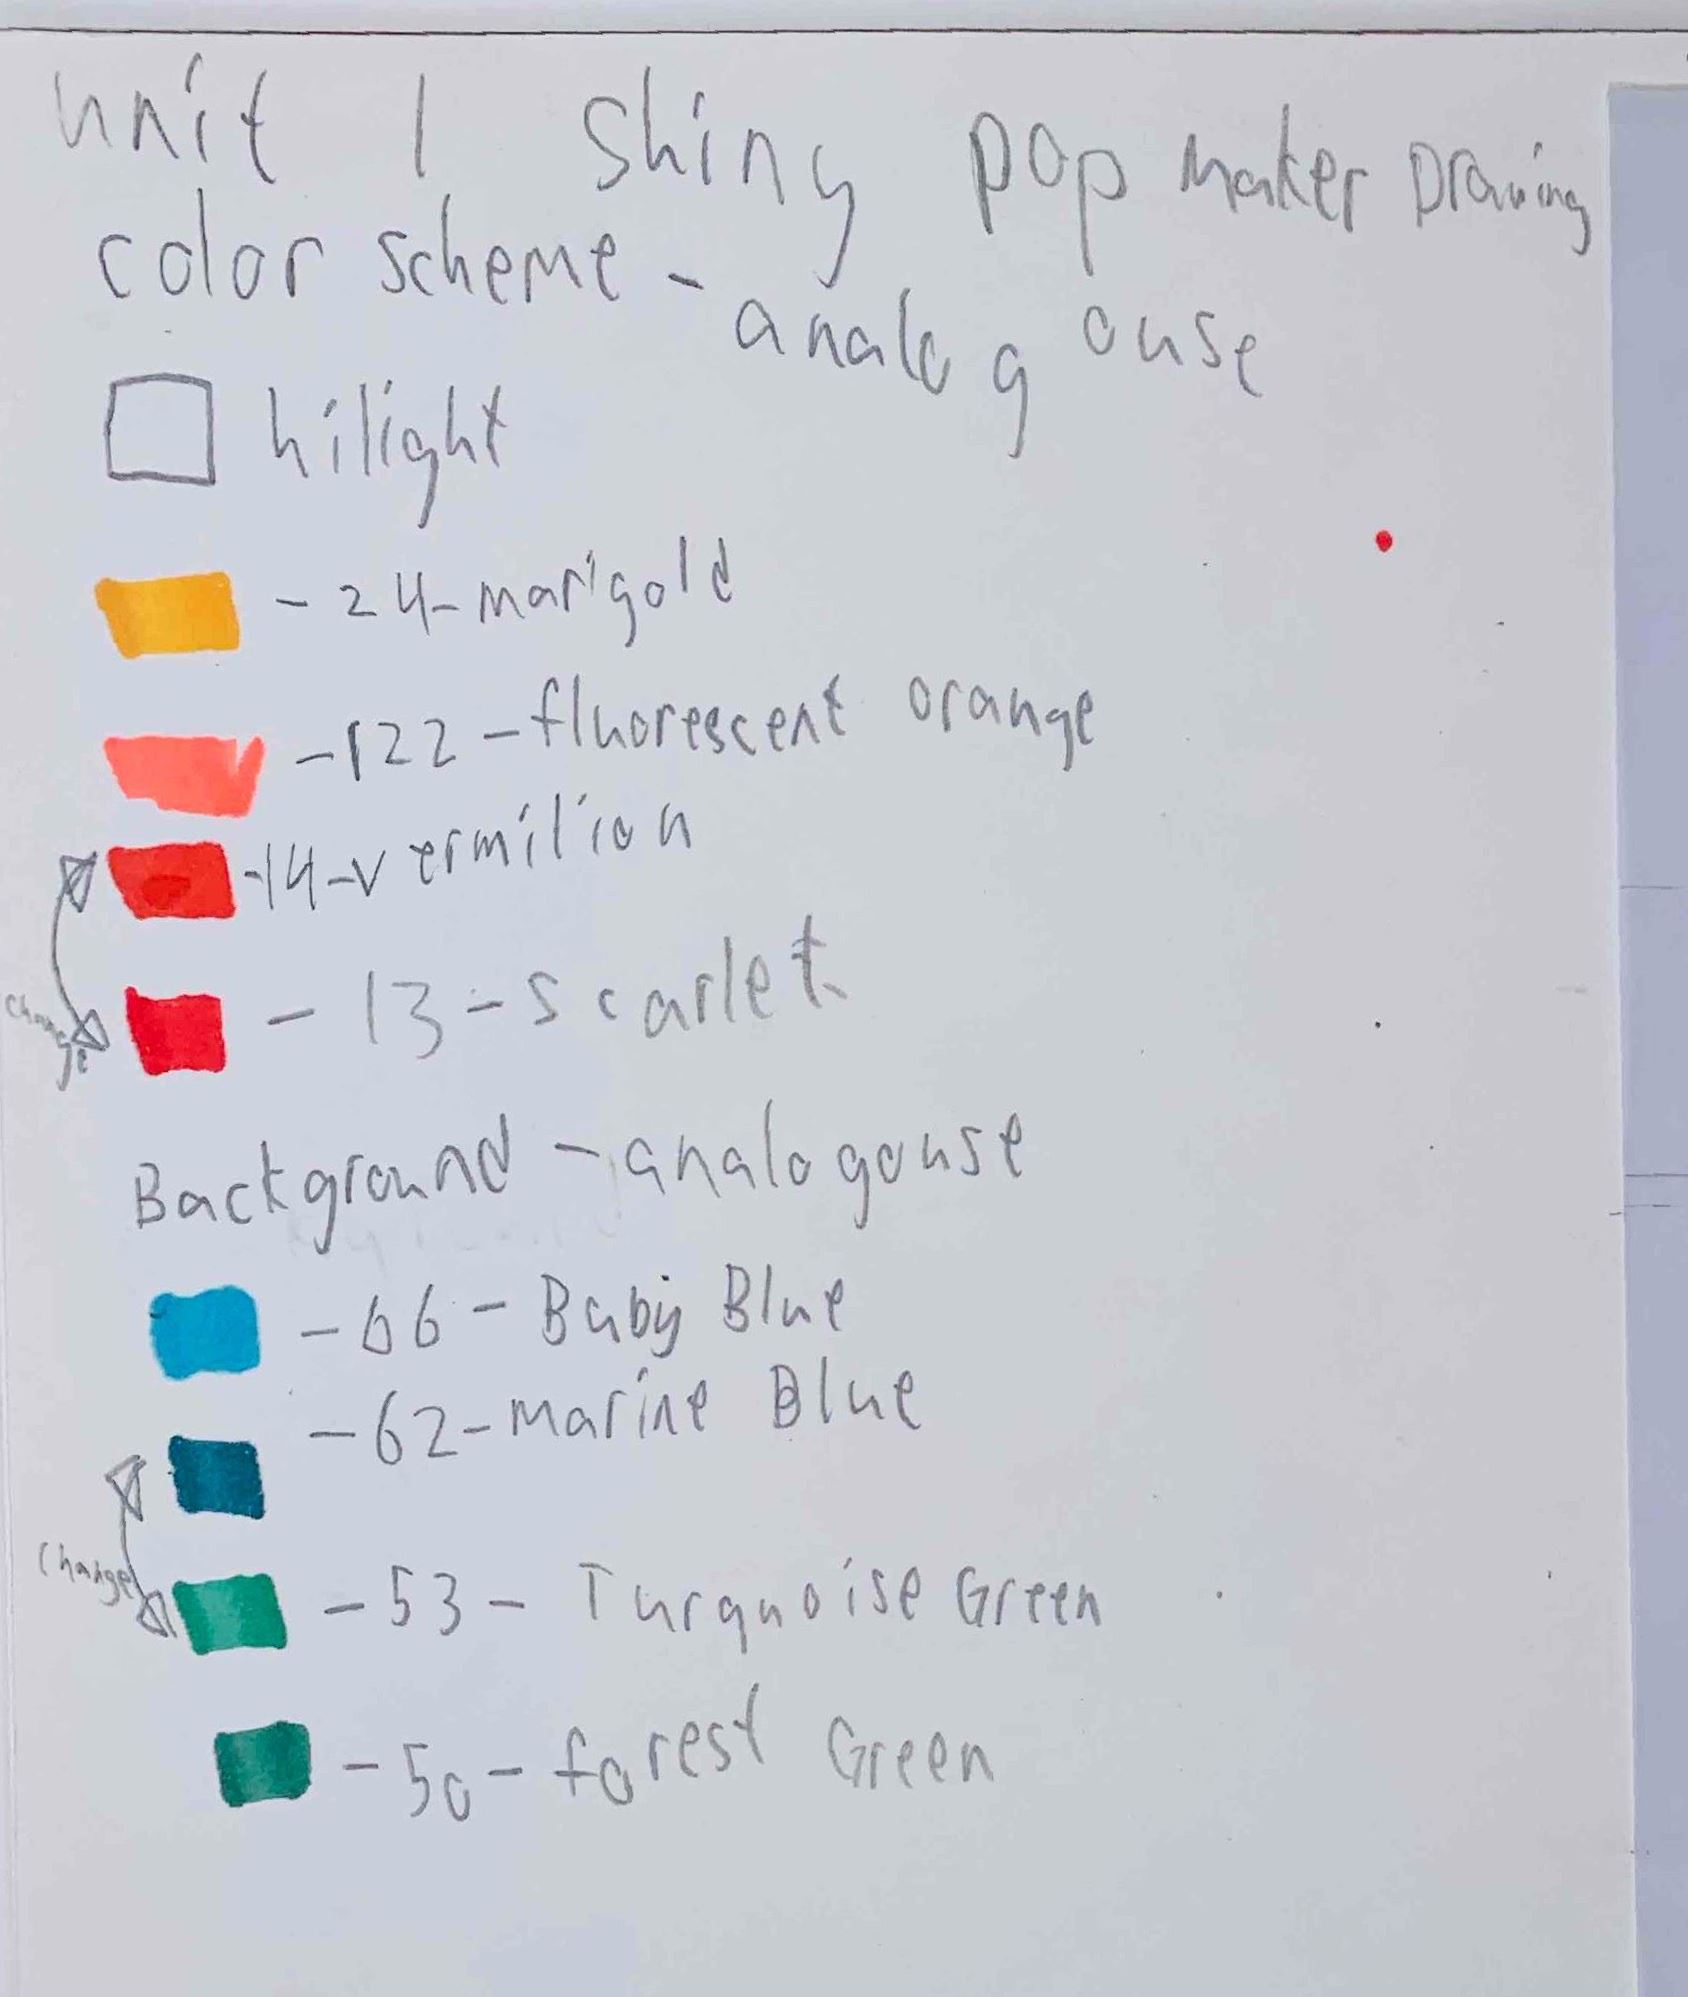 unit 1 Shiny pop maker Drawing
color scheme - analogouse
hilight
- 24- marigold
-122 - fluorescent orange
-14-vermilion
- 13 - scarlet
change
Background - analogouse
-66 - Baby Blue
-62-marine Blue
change
-53- Turquoise Green
-50- forest Green